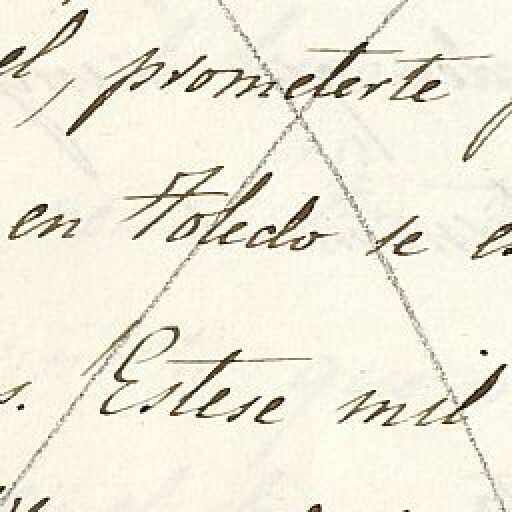 el, prometerte
en Toledo se
s. Estese mil